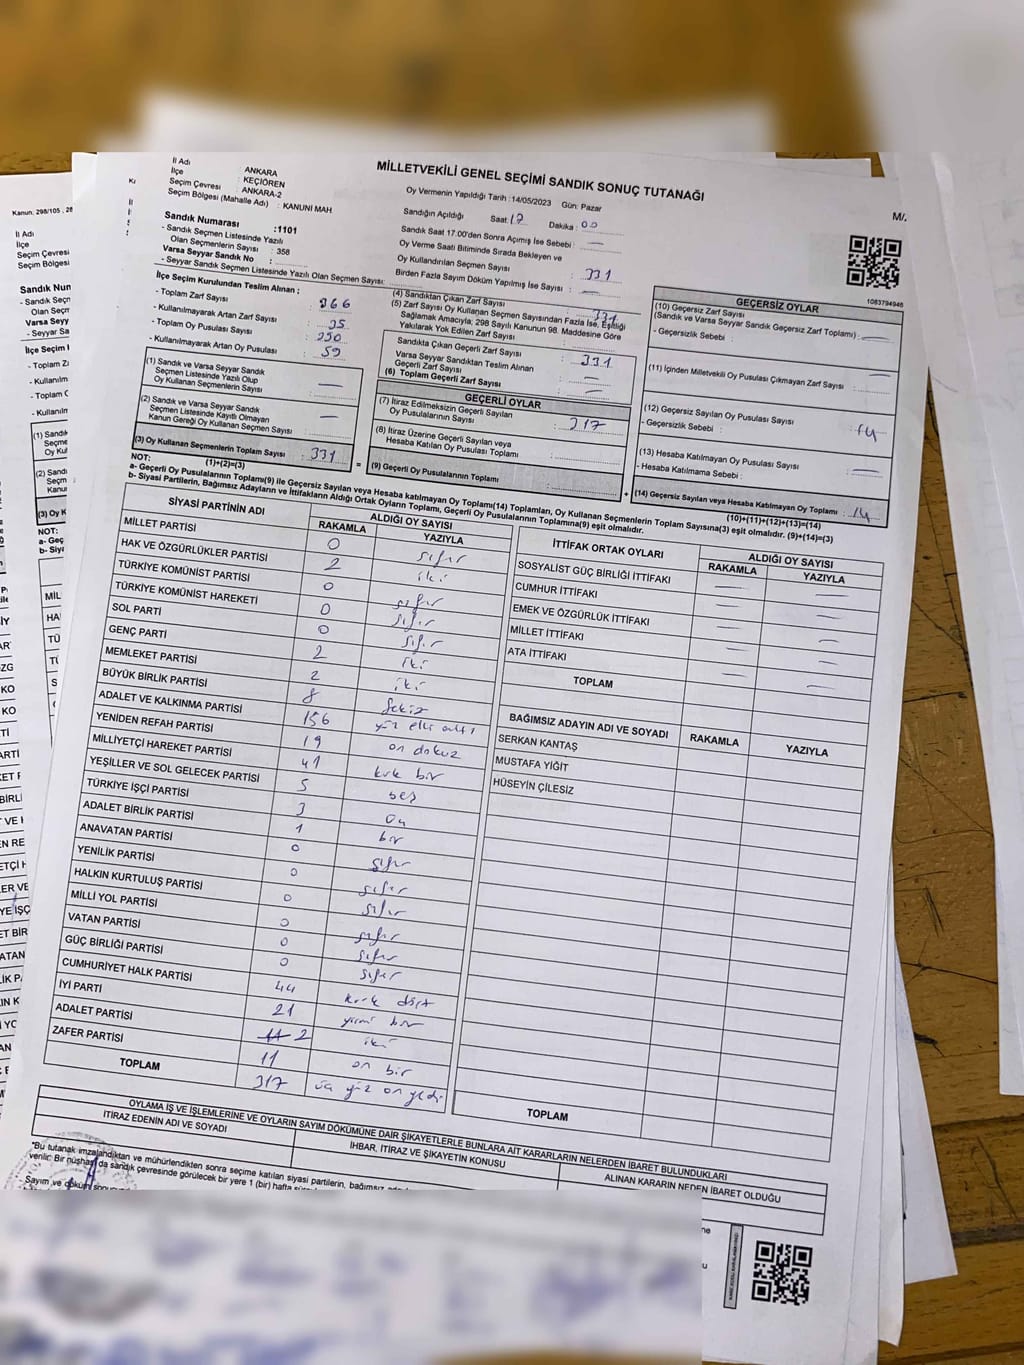 MİLLETVEKİLİ GENEL SEÇİMİ SANDIK SONUÇ TUTANAĞI
İl Adı ANKARA
İlçe KEÇİÖREN
Seçim Çevresi : ANKARA-2
Seçim Bölgesi (Mahalle Adı) : KANUNİ MAH
Oy Vermenin Yapıldığı Tarih :14/05/2023 Gün: Pazar
Sandığın Açıldığı Saat: 17 Dakika : 00
Sandık Saat 17.00'den Sonra Açımış İse Sebebi : —
Oy Verme Saati Bitiminde Sırada Bekleyen ve
Oy Kullandırılan Seçmen Sayısı : 331
Birden Fazla Sayım Döküm Yapılmış İse Sayısı : —
Sandık Numarası :1101
- Sandık Seçmen Listesinde Yazılı
Olan Seçmenlerin Sayısı : 358
Varsa Seyyar Sandık No :
- Seyyar Sandık Seçmen Listesinde Yazılı Olan Seçmen Sayısı:
İlçe Seçim Kurulundan Teslim Alınan ;
- Toplam Zarf Sayısı : 366
- Kullanılmayarak Artan Zarf Sayısı : 35
- Toplam Oy Pusulası Sayısı
- Kullanılmayarak Artan Oy Pusulası : 59
(1) Sandık ve Varsa Seyyar Sandık
Seçmen Listesinde Yazılı Olup
Oy Kullanan Seçmenlerin Sayısı : —
(2) Sandık ve Varsa Seyyar Sandık
Seçmen Listesinde Kayıtlı Olmayan
Kanun Gereği Oy Kullanan Seçmen Sayısı : —
(3) Oy Kullanan Seçmenlerin Toplam Sayısı : 331
(1)+(2)=(3)
(4) Sandıktan Çıkan Zarf Sayısı : 331
(5) Zarf Sayısı Oy Kullanan Seçmen Sayısından Fazla İse, Eşitliği
Sağlamak Amacıyla; 298 Sayılı Kanunun 98. Maddesine Göre
Yakılarak Yok Edilen Zarf Sayısı :
Sandıkta Çıkan Geçerli Zarf Sayısı : 331
Varsa Seyyar Sandıktan Teslim Alınan
Geçerli Zarf Sayısı
(6) Toplam Geçerli Zarf Sayısı : —
GEÇERLİ OYLAR
(7) İtiraz Edilmeksizin Geçerli Sayılan
Oy Pusulalarının Sayısı : 317
(8) İtiraz Üzerine Geçerli Sayılan veya
Hesaba Katılan Oy Pusulası Toplamı :
= (9) Geçerli Oy Pusulalarının Toplamı :
1083794946
GEÇERSİZ OYLAR
(10) Geçersiz Zarf Sayısı
(Sandık ve Varsa Seyyar Sandık Geçersiz Zarf Toplamı) : —
- Geçersizlik Sebebi :
(11) İçinden Milletvekili Oy Pusulası Çıkmayan Zarf Sayısı : —
(12) Geçersiz Sayılan Oy Pusulası Sayısı : 14
- Geçersizlik Sebebi :
(13) Hesaba Katılmayan Oy Pusulası Sayısı : —
- Hesaba Katılmama Sebebi :
+ (14) Geçersiz Sayılan veya Hesaba Katılmayan Oy Toplamı : 14
(10)+(11)+(12)+(13)=(14)
NOT:
a- Geçerli Oy Pusulalarının Toplamı(9) ile Geçersiz Sayılan veya Hesaba katılmayan Oy Toplamı(14) Toplamları, Oy Kullanan Seçmenlerin Toplam Sayısına(3) eşit olmalıdır. (9)+(14)=(3)
b- Siyasi Partilerin, Bağımsız Adayların ve İttifakların Aldığı Ortak Oyların Toplamı, Geçerli Oy Pusulalarının Toplamına(9) eşit olmalıdır.
SİYASİ PARTİNİN ADI ALDIĞI OY SAYISI
RAKAMLA YAZIYLA
MİLLET PARTİSİ 0 sıfır
HAK VE ÖZGÜRLÜKLER PARTİSİ 2 iki
TÜRKİYE KOMÜNİST PARTİSİ 0 sıfır
TÜRKİYE KOMÜNİST HAREKETİ 0 sıfır
SOL PARTİ 0 sıfır
GENÇ PARTİ 2 iki
MEMLEKET PARTİSİ 2 iki
BÜYÜK BİRLİK PARTİSİ 8 sekiz
ADALET VE KALKINMA PARTİSİ 156 yüz elli altı
YENİDEN REFAH PARTİSİ 19 on dokuz
MİLLİYETÇİ HAREKET PARTİSİ 41 kırk bir
YEŞİLLER VE SOL GELECEK PARTİSİ 5 beş
TÜRKİYE İŞÇİ PARTİSİ 3
ADALET BİRLİK PARTİSİ 1 bir
ANAVATAN PARTİSİ 0 sıfır
YENİLİK PARTİSİ 0 sıfır
HALKIN KURTULUŞ PARTİSİ 0 sıfır
MİLLİ YOL PARTİSİ 0 sıfır
VATAN PARTİSİ 0 sıfır
GÜÇ BİRLİĞİ PARTİSİ 0 sıfır
CUMHURİYET HALK PARTİSİ 44 kırk dört
İYİ PARTİ 21 yirmi bir
ADALET PARTİSİ 2 iki
ZAFER PARTİSİ 11 on bir
TOPLAM 317 üç yüz on yedi
İTTİFAK ORTAK OYLARI ALDIĞI OY SAYISI
RAKAMLA YAZIYLA
SOSYALİST GÜÇ BİRLİĞİ İTTİFAKI — —
CUMHUR İTTİFAKI — —
EMEK VE ÖZGÜRLÜK İTTİFAKI — —
MİLLET İTTİFAKI — —
ATA İTTİFAKI — —
TOPLAM
BAĞIMSIZ ADAYIN ADI VE SOYADI RAKAMLA YAZIYLA
SERKAN KANTAŞ
MUSTAFA YİĞİT
HÜSEYİN ÇİLESİZ
TOPLAM
OYLAMA İŞ VE İŞLEMLERİNE VE OYLARIN SAYIM DÖKÜMÜNE DAİR ŞİKAYETLERLE BUNLARA AİT KARARLARIN NELERDEN İBARET BULUNDUKLARI
İTİRAZ EDENİN ADI VE SOYADI İHBAR, İTİRAZ VE ŞİKAYETİN KONUSU ALINAN KARARIN NEDEN İBARET OLDUĞU
"Bu tutanak imzalandıktan ve mühürlendikten sonra seçime katılan siyasi partilerin, bağımsız
verilir. Bir nüshası da sandık çevresinde görülecek bir yere 1 (bir) hafta